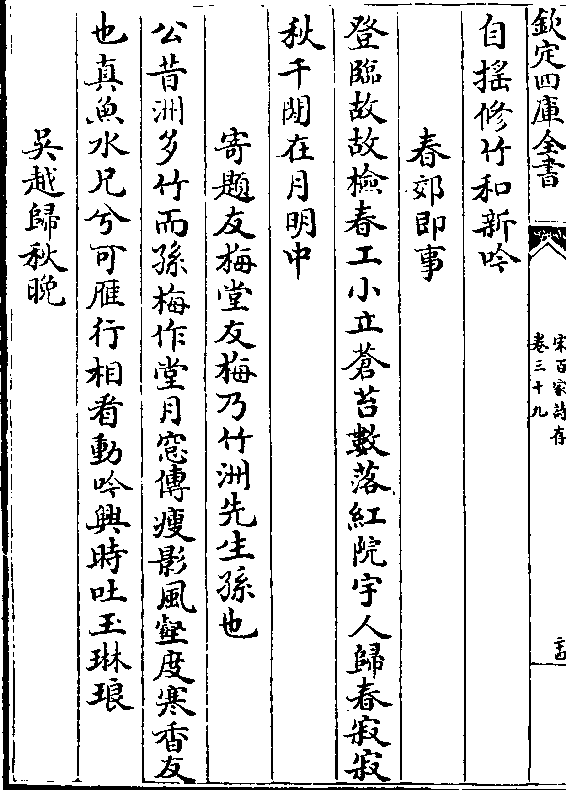 欽定四庫全書
宋百家詩存
卷三十九
自搖修竹和新吟
春郊即事
登臨故故檢春工小立蒼苔數落紅院宇人歸春寂寂
秋千閒在月明中
寄題友梅堂友梅乃竹洲先生孫也
公昔洲多竹而孫梅作堂月窓傳瘦影風壑度寒香友
也真魚水兄兮可雁行相看動吟興時吐玉琳琅
吳越歸秋晚